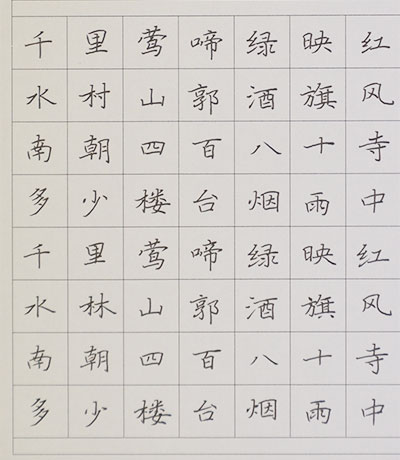 千里莺啼绿映红
水村山郭酒旗风
南朝四百八十寺
多少楼台烟雨中
千里莺啼绿映红
水林山郭酒旗风
南朝四百八十寺
多少楼台烟雨中